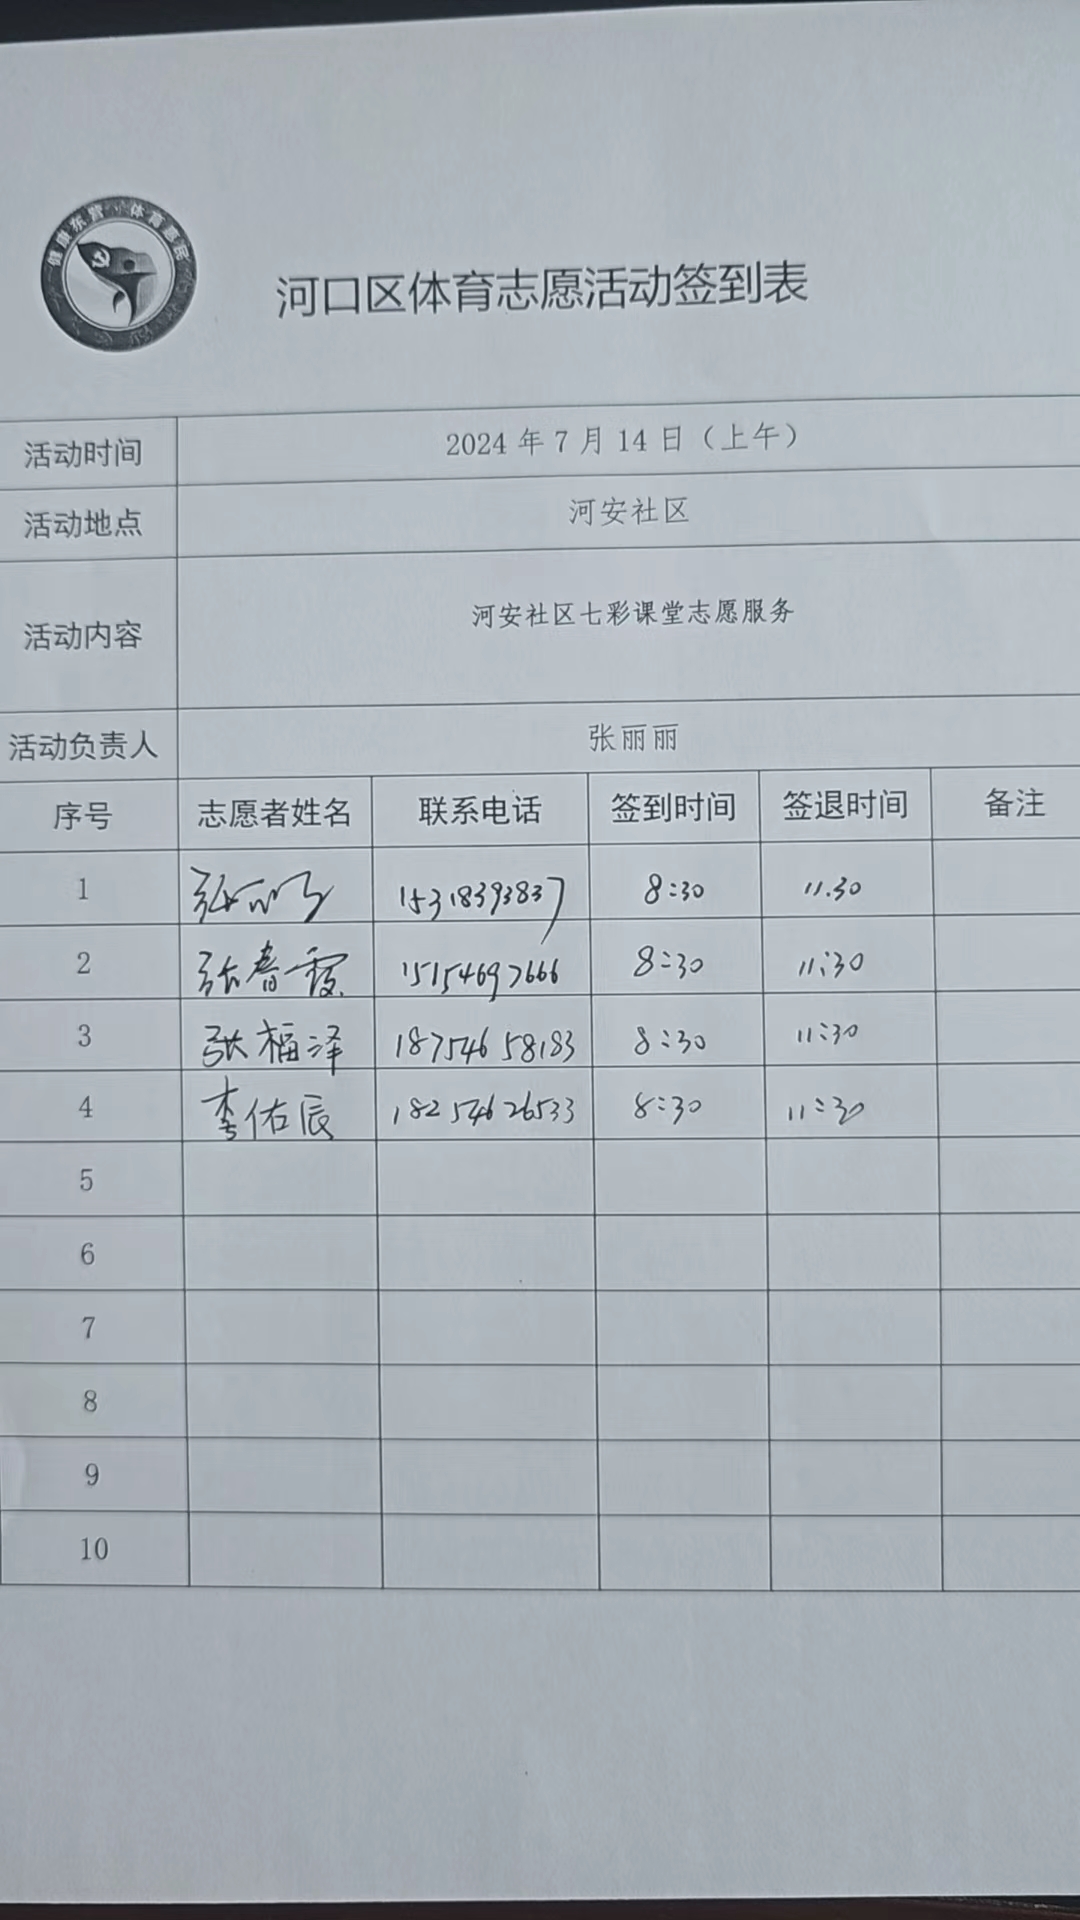 健康东营 体育惠民
河口区体育志愿活动签到表
活动时间 2024 年 7 月 14 日（上午）
活动地点 河安社区
活动内容 河安社区七彩课堂志愿服务
活动负责人 张丽丽
序号 志愿者姓名 联系电话 签到时间 签退时间 备注
1 张丽丽 15318393837 8:30 11.30
2 张春霞 15154697666 8:30 11:30
3 张福泽 18754658183 8:30 11:30
4 李佑辰 18254626533 8:30 11:30
5
6
7
8
9
10